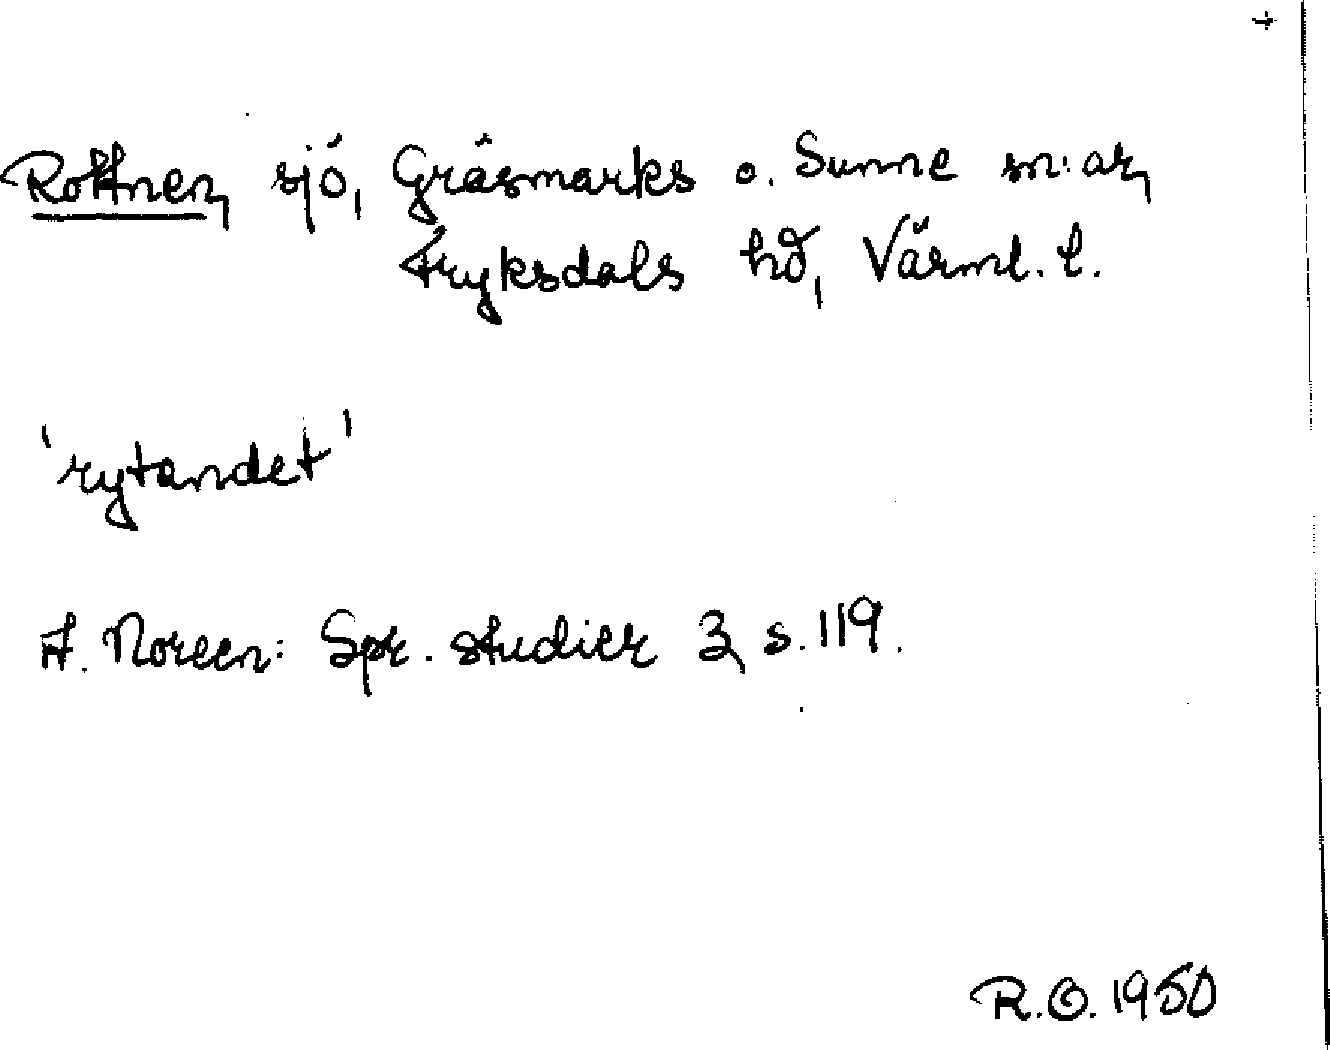 +
Rottnen, sjö, Gräsmarks o. Sunne sn:ar,
Fryksdals hd, Värml. l.
'rytandet'
A. Noreen: Spr. studier 3, s. 119.
R.O. 1950